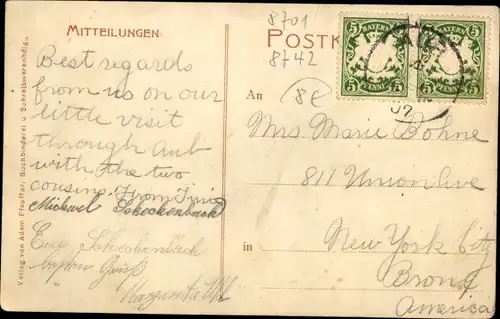 MITTEILUNGEN
Best regards
from us on our
little visit
through Aub
with the two
cousins. From
Michael Scheckenbach
Eva Scheckenbach
Margarita
Verlag von Adam Pfeuffer, Buchbinderei u. Schreibwarenhdlg.
8701
POSTK
8742
BAYERN
5 PFENNIG 5
BAYERN
5 PFENNIG 5
07
An
Mrs. Marie Bohne
811 Union Ave
in
New York City
Bronx
America